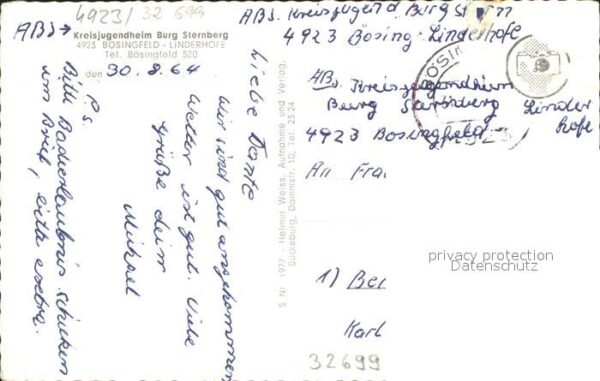 4923/ 32 699
ABS→
Kreisjugendheim Burg Sternberg
4923 BÖSINGFELD - LINDERHOFE
Tel. Bösingfeld 520
den 30.8.64
Liebe Tante
Wir sind gut angekommen,
Wetter ist gut. Viele
Grüße dein
Michael
P.s.
Bitte Badeerlaubnis schicken
im Brief, bitte extra.
S Nr. 1977 · Helmut Weiss, Aufnahme und Verlag,
Bückeburg, Dammstr. 10, Tel. 23 24
ABS. Kreisjugend Burg St
4923 Bösing-Linderhofe
ABs. Kreisjugendheim
Burg Sternberg Linder
hofe
4923 Bosingfeld
BÖSI
4923
An Frau
1) Ber
Karl
32699
privacy protection
Datenschutz